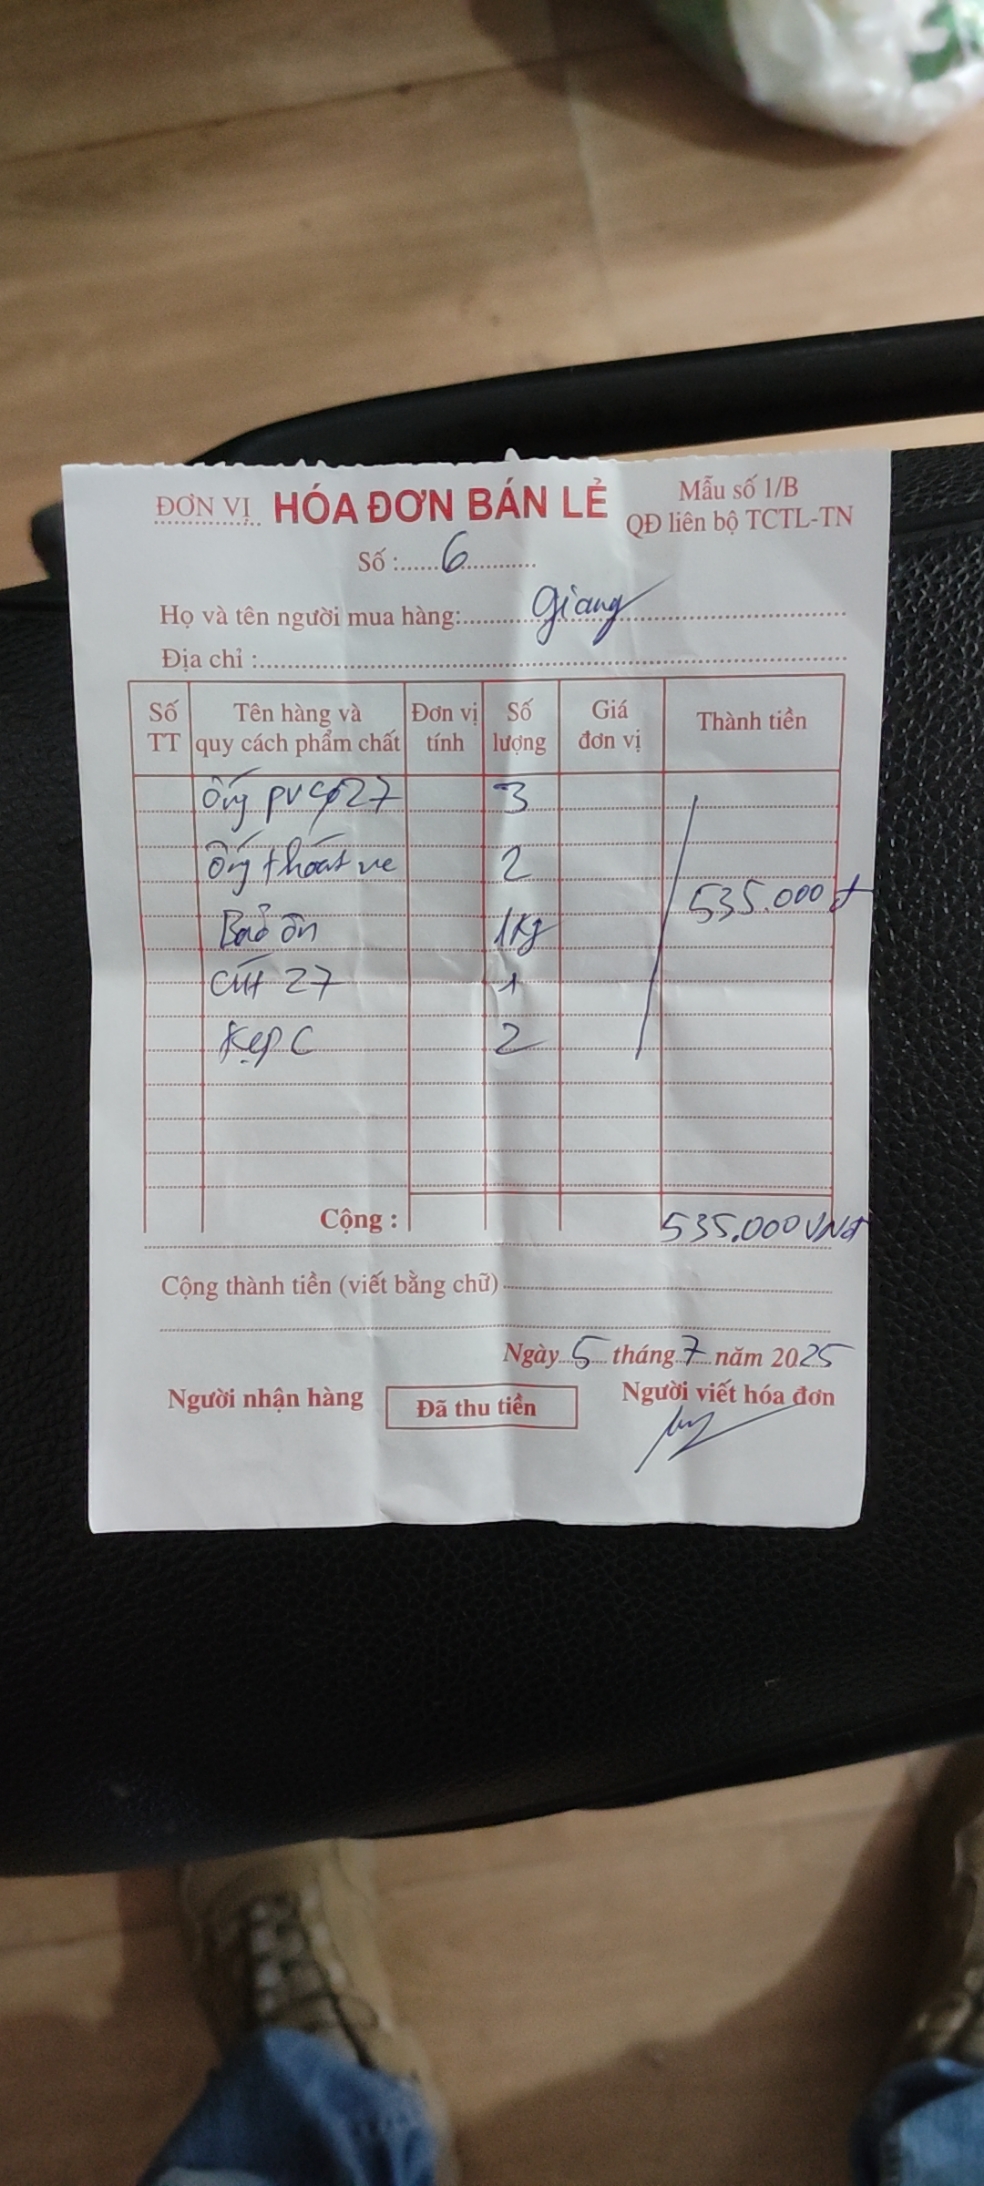 ĐƠN VỊ HÓA ĐƠN BÁN LẺ Mẫu số 1/B
QĐ liên bộ TCTL-TN
Số : 6
Họ và tên người mua hàng: Giang
Địa chỉ :
Số TT Tên hàng và quy cách phẩm chất Đơn vị tính Số lượng Giá đơn vị Thành tiền
Ống PVC φ27 3
Ống thoát 2
535.000 đ
Bảo ôn 1Kg
Cút 27 1
Kẹp C 2
Cộng : 535.000 VNđ
Cộng thành tiền (viết bằng chữ)
Ngày 5 tháng 7 năm 2025
Người nhận hàng Đã thu tiền Người viết hóa đơn